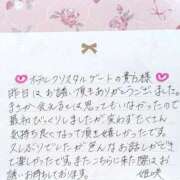 ホテルクリスタルゲートの貴方様
昨日は、お誘い頂きありがとうございました。
まさか会えるとは思ってもいなかったので
最初びっくりしましたが
気持ち良くなって頂き嬉しかったです。
久しぶりでしたが色んなお話しができ
て楽しかったです またこちらに来た際はお
誘いお待ちしております。 姫咲